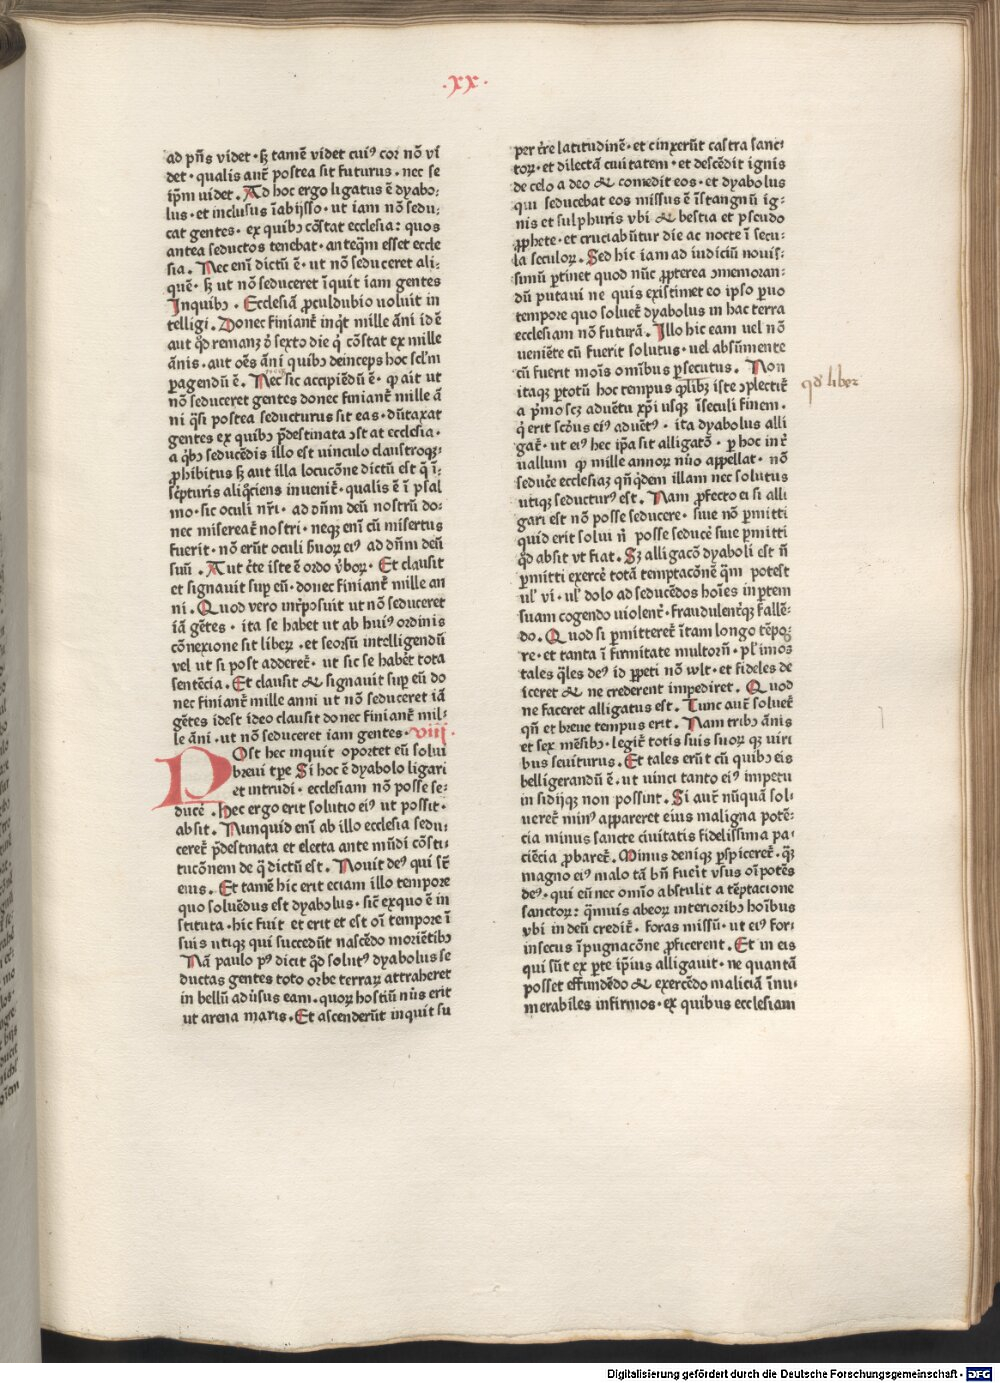 ·xx·
ad p̄ns videt · sꝫ tamē videt cuiꝰ cor nō vi
det · qualis aut̄ postea sit futurus · nec se
ip̄m uidet . Ad hoc ergo ligatus ē dyabo⸗
lus · et inclusus ī abijsso · ut iam nō sedu⸗
cat gentes · ex quibꝫ cōstat ecclesia : quos
antea seductos tenebat · anteq̄m esset eccle
sia . Nec enī dictū ē · ut nō seduceret ali⸗
quē · sꝫ ut nō seduceret īquit iam gentes
Inquibꝫ . Ecclesiā ꝓculdubio uoluit in
telligi . Donec finiant̄ inq̇t mille āni id ē
aut q̄d remanꝫ ð sexto die q̇ cōstat ex mille
ānis · aut oēs āni quibꝫ deinceps hoc sclm̄
ꝑagendū ē . Nec sic accipiēdū ē · qꝫ ait ut
nō seduceret gentes donec finiant̄ mille ā
ni q̄si postea seducturus sit eas · dūtaxat
gentes ex quibꝫ p̄destinata ↄstat ecclesia ·
a q̇bꝫ seducēdis illo est uinculo claustroqꝫ
ꝓhibitus sꝫ aut illa locucōne dictū est q̄ ī⸗
sc̄pturis aliq̄ciens inuenit̄ · qualis ē ī psal
mo · sic oculi nr̄i · ad dn̄m deū nostrū do⸗
nec misereat̄ nostri · neqꝫ enī cū misertus
fuerit · nō erūt oculi ẜuoꝝ eiꝰ ad dn̄m deū
suū . Aut c̄te iste ē ordo v̄boꝝ · Et clausit
et signauit suꝑ eū · donec finiant̄ mille an
ni . Quod vero int̄posuit ut nō seduceret
iā gētes · ita se habet ut ab huiꝰ ordinis
cōnexione sit libeꝝ · et seorsū intelligendū
vel ut si post adderet̄ · ut sic se habēt tota
sentēcia . Et clausit & signauit suꝑ eū do
nec finiant̄ mille anni ut nō seduceret iā
gētes idest ideo clausit donec finiant̄ mil⸗
le āni · ut nō seduceret iam gentes · viij .
Post hec inquit oportet eū solui
breui tꝑe Si hoc ē dyabolo ligari
et intrudi · ecclesiam nō posse se⸗
ducē . hec ergo erit solutio eiꝰ ut possit ·
absit . Nunquid enī ab illo ecclesia sedu⸗
ceret̄ p̄destinata et electa ante mūdi cōsti⸗
tucōnem de q̄ dictū est . Nouit deꝰ qui st̄
eius . Et tamē hic erit eciam illo tempore
quo soluēdus est dyabolus · sic̄ exquo ē in
stituta · hic fuit et erit et est oī tempore ī
suis utiqꝫ qui succedūt nascēdo moriētibꝫ
Nā paulo pꝰ dicit q̄d solutꝰ dyabolus se
ductas gentes toto orbe terraꝝ attraheret
in bellū aduʼsus eam · quoꝝ hostiū nūs erit
ut arena maris . Et ascenderūt inquit su
per tr̄e latitudinē · et cinxerūt castra sanc⸗
toꝝ · et dilectā ciuitatem · et descēdit ignis
de celo a deo & comedit eos · et dyabolus
qui seducebat eos missus ē ī stangnū ig⸗
nis et sulphuris vbi & bestia et pseudo
ꝓphete · et cruciabūtur die ac nocte ī secu⸗
la seculoꝝ . Sed hic iam ad iudiciū nouis⸗
simū ꝑtinet quod nūc ꝓpterea ↄmemoran⸗
dū putaui ne quis existimet eo ipso ꝑuo
tempore quo soluet̄ dyabolus in hac terra
ecclesiam nō futurā . Illo hic eam uel nō
ueniēte cū fuerit solutus · uel absūmente
cū fuerit mōis omībus ꝑsecutus . Non
itaqꝫ ꝑtotū hoc tempus qꝫ libꝫ iste ↄplectit̄
a pʼmo scꝫ aduētu xp̄i usqꝫ ī seculi finem ·
q̇ erit sc̄dus eiꝰ aduētꝰ · ita dyabolus alli
gat̄ · ut eiꝰ hec ip̄a sit alligatō · ꝑ hoc int̄
uallum qꝫ mille annoꝝ nūo appellat · nō
seducē ecclesiaꝫ qn̄q̇dem illam nec solutus
utiqꝫ seducturꝰ est . Nam ꝓfecto ei si alli
gari est nō posse seducere · siue nō ꝑmitti
quid erit solui n̄ posse seducē siue ꝑmitti
q̄d absit vt fiat . Sꝫ alligacō dyaboli est n̄
ꝑmitti exercē totā temptacōnē q̄m potest
ulʼ vi · ulʼ dolo ad seducēdos hoīes in ꝑtem
suam cogendo uiolent̄ · fraudulent̄qꝫ fallē⸗
do . Quod si ꝑmitteret̄ ī tam longo tēpo⸗
re · et tanta ī firmitate multoꝝ · plʼimos
tales q̄les deꝰ id ꝑpeti nō wlt · et fideles de
iceret & ne crederent impediret . Quod
ne faceret alligatus est . Tunc aut̄ soluet̄
qn̄ et breue tempus erit . Nam tribꝫ ānis
et sex mēsibꝫ · legit̄ totis suis suoꝝ qꝫ uiri
bus seuiturus . Et tales erūt cū quibꝫ eis
belligerandū ē · ut uinci tanto eiꝰ impetu
insidijqꝫ non possint . Si aut̄ nūquā sol⸗
ueret̄ minꝰ appareret eius maligna potē⸗
cia minus sancte ciuitatis fidelissima pa⸗
ciēcia ꝓbaret̄ . Minus deniqꝫ ꝑspiceret̄ · q̄ꝫ
magno eiꝰ malo tā bn̄ fueit vʼsus oīpotēs
deꝰ · qui eū nec omīo abstulit a tēptacione
sanctoꝝ : q̄muis abeoꝝ interioribꝫ hoībus
vbi in deū credit̄ · foras missū · ut eiꝰ for⸗
insecus īpugnacōne ꝓficerent . Et in eis
qui sūt ex ꝑte ip̄ius alligauit · ne quantā
posset effundēdo & exercēdo maliciā īnu⸗
merabiles infirmos · ex quibus ecclesiam
qd' liber
Digitalisierung gefördert durch die Deutsche Forschungsgemeinschaft · DFG